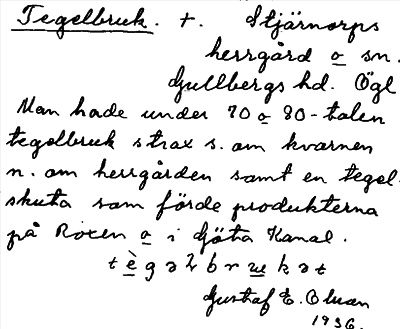 Tegelbruk. +. Stjärnorps
herrgård o sn.
Gullbergs hd. Ögl
Man hade under 70 o 80-talen
tegelbruk strax s. om kvarnen
n. om herrgården samt en tegel-
skuta som förde produkterna
på Roxen o i Göta Kanal.
Gustaf E. Olsson
1936.